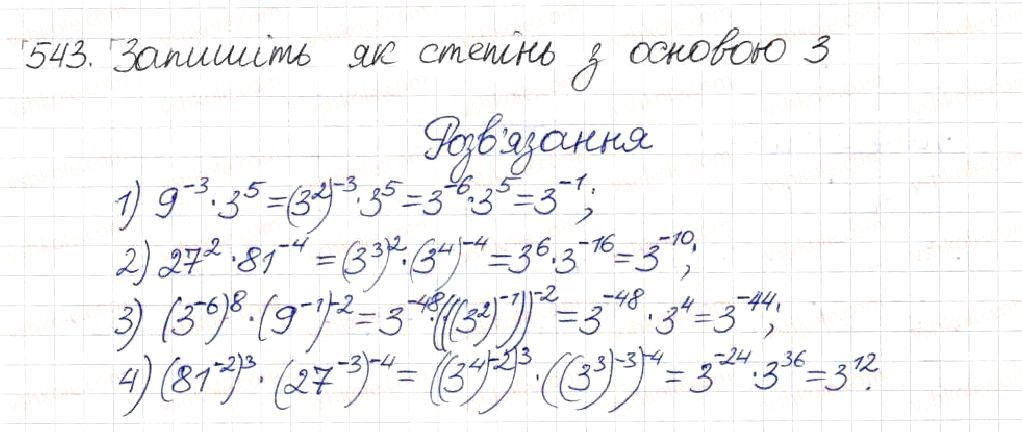 543. Запишіть як степінь з основою 3
Розв'язання
1) 9⁻³·3⁵=(3²)⁻³·3⁵=3⁻⁶·3⁵=3⁻¹;
2) 27²·81⁻⁴=(3³)²·(3⁴)⁻⁴=3⁶·3⁻¹⁶=3⁻¹⁰;
3) (3⁻⁶)⁸·(9⁻¹)⁻²=3⁻⁴⁸·(((3²)⁻¹))⁻²=3⁻⁴⁸·3⁴=3⁻⁴⁴;
4) (81⁻²)³·(27⁻³)⁻⁴=((3⁴)⁻²)³·((3³)⁻³)⁻⁴=3⁻²⁴·3³⁶=3¹².